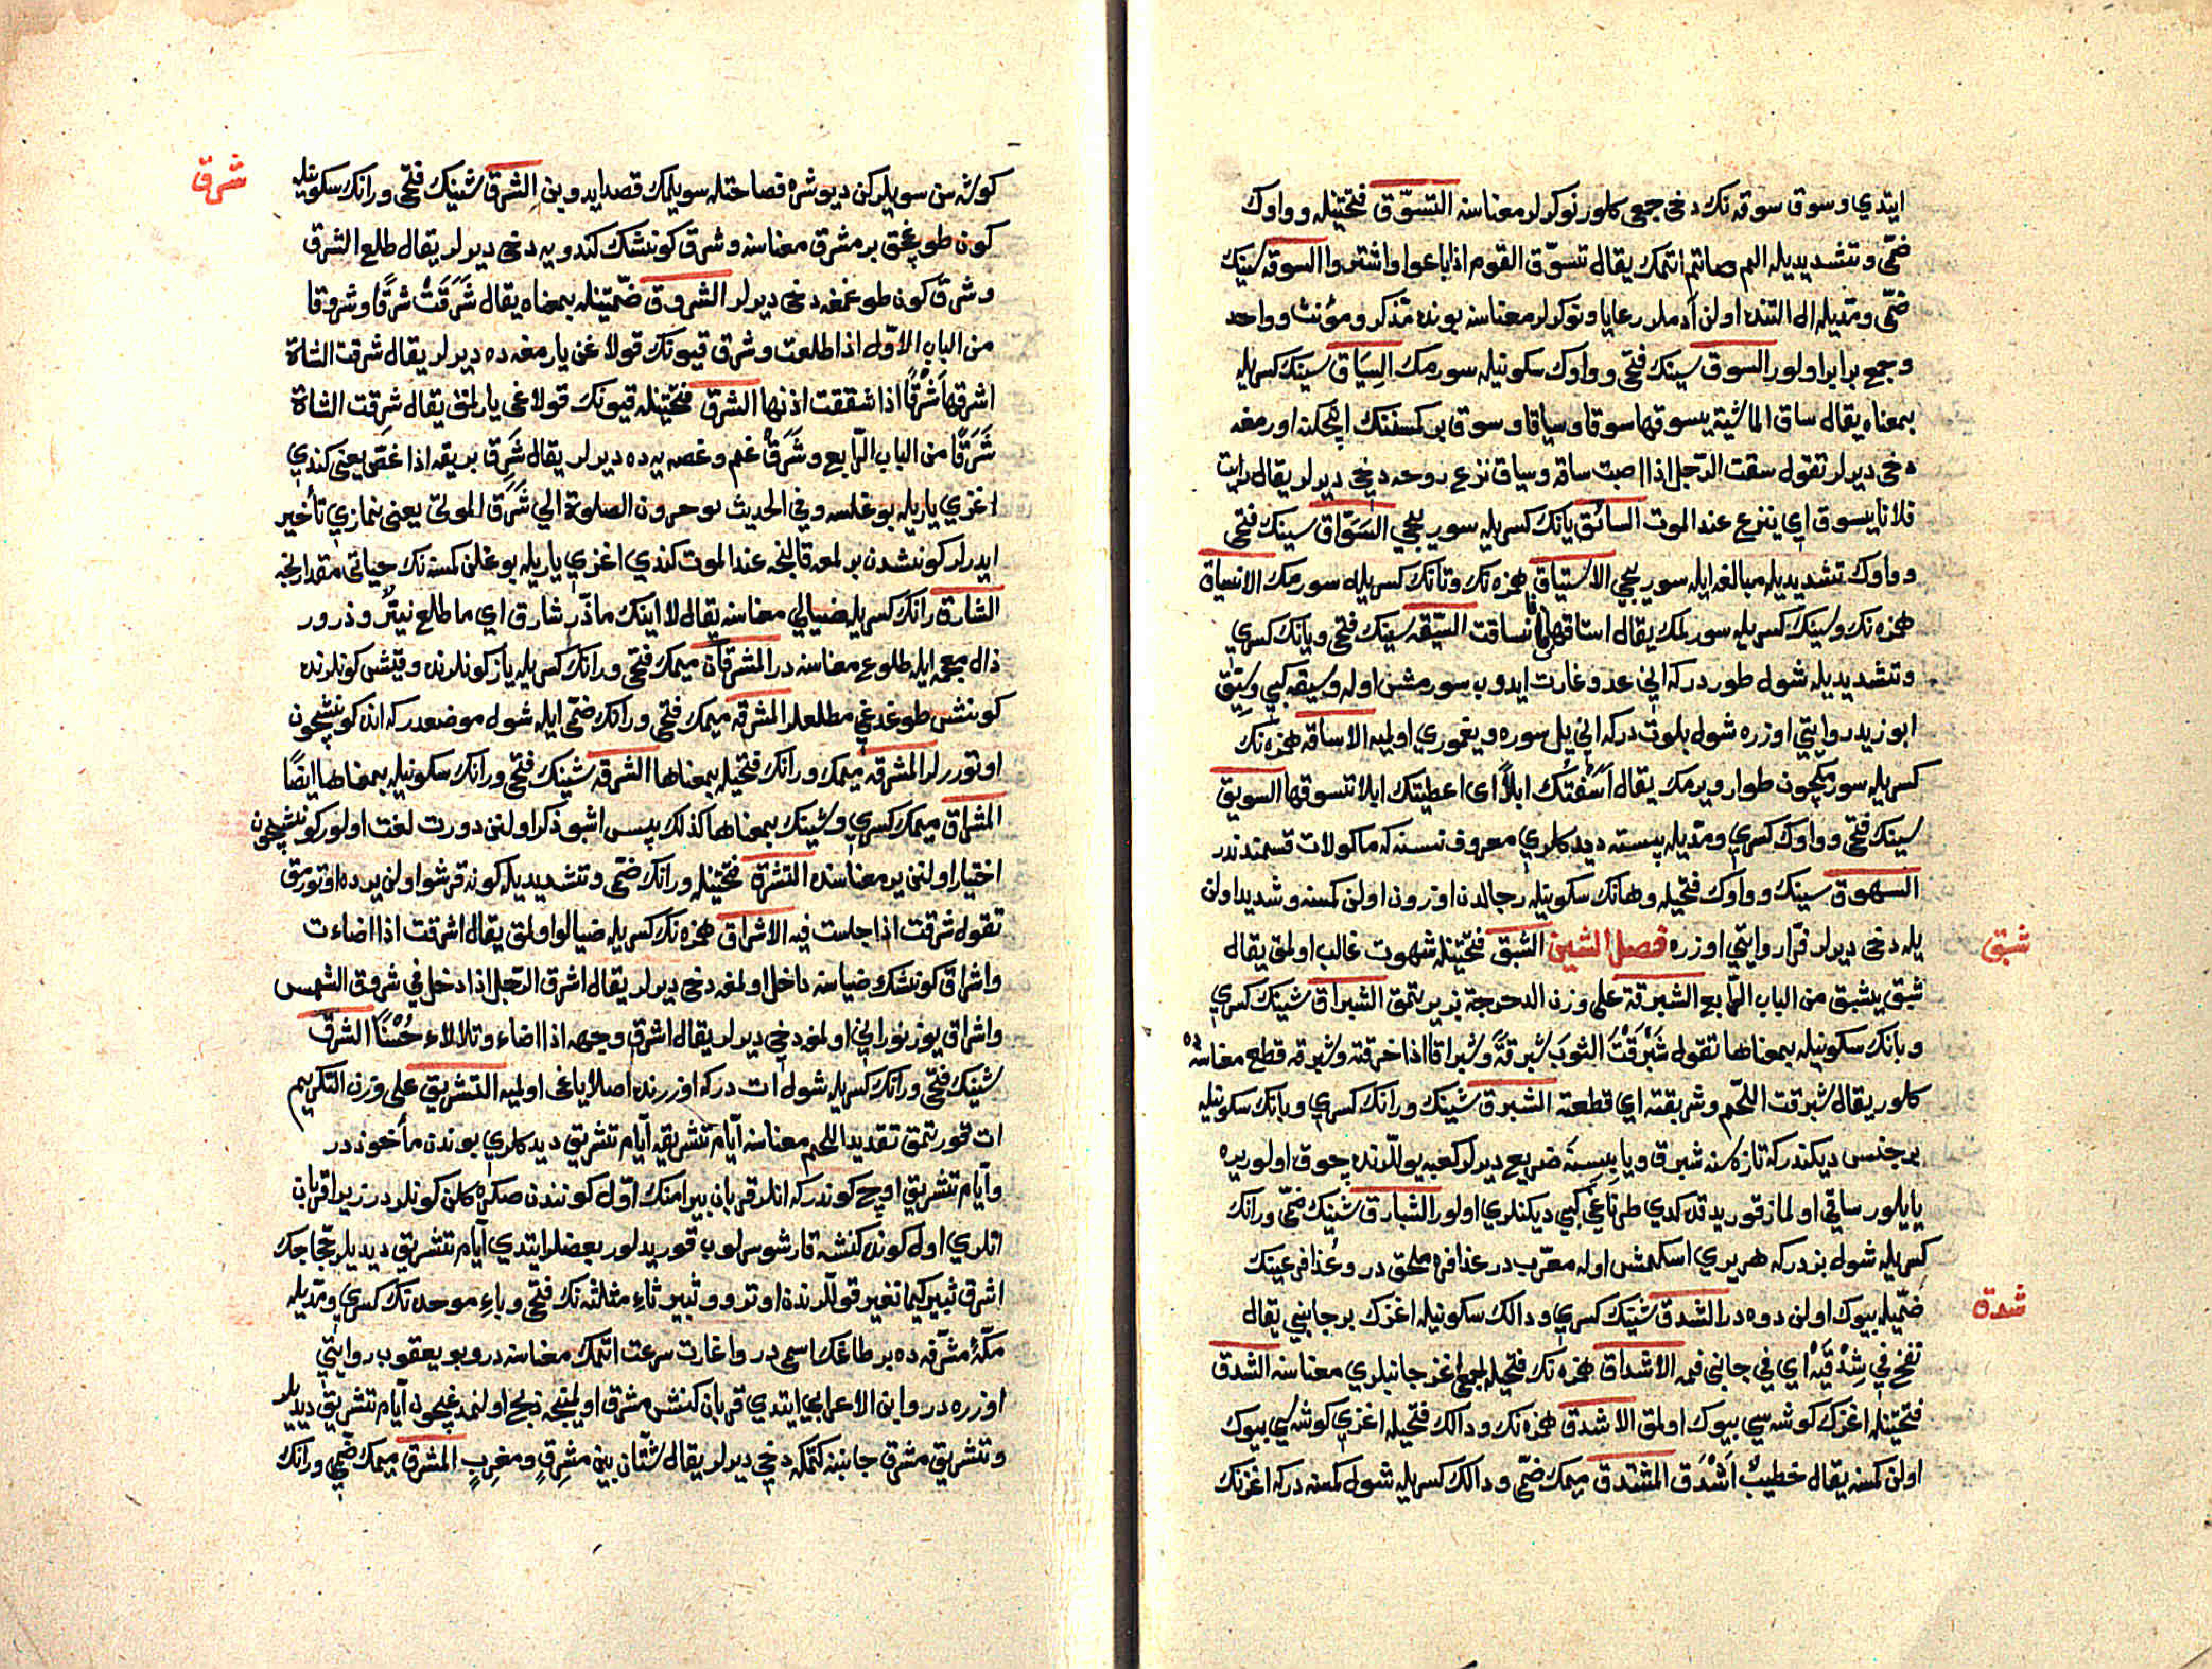 ايتدي و سوق سوقه نك دخى جمعى كلور نوكرلر معناسنه التسوّق فتحتينله و واوك
ضمّى و تشديديله الم و صاتم اتمك يقال تسوّق القوم اذا باعوا واشتروا السوقه سينك
ضمّى و مدّيله ال التنده اولن آدملر رعايا و نوكرلر معناسنه بونده مذكر و مؤنث و واحد
و جمع برابر اولور السوق سينك فتحى و واوك سكونيله سورمك السياق سينك كسريله
بمعناه يقال ساق الماشية يسوقها سوقا و سياقا و سوق بر كمسنه نك انجكنه اورمغه
دخى ديرلر تقول سقت الرّجل اذا اصبت ساقه و سياق نزع روحه دخى ديرلر يقال رايت
فلانا يسوق اي ينزع عند الموت السائق يانك كسريله سوريجى السّوّاق سينك فتحى
و واوك تشديديله مبالغه ايله سوريجى الاستياق همزه نك و تانك كسريله سورمك الانسياق
همزه نك و سينك كسريله سورلمك يقال استاقها فانساقت السيّقه سينك فتحى و يانك كسري
و تشديديله شول طوردركه انى عدو غارت ايدوب سورمش اوله وسيقه كبى و سيّق
ابو زيد روايتى اوزره شول بلوت دركه انى يل سوره و يغموري اولميه الاساقه همزه نك
كسريله سورمكچون طوار ويرمك يقال اسقتك ابلاً اى اعطيتك ابلا تسوقها السويق
سينك فتحى و واوك كسري و مدّيله پسته ديدكلري معروف نسنه كه ماكولات قسمندندر
السهوق سينك و واوك فتحيله و هانك سكونيله رجالدن اوزون اولن كمسنه و شديد اولن
يله دخى ديرلر فرّا روايتى اوزره فصل الشين الشبق فتحتينله شهوت غالب اولمق يقال
شبق
شبق يشبق من الباب الرّابع الشبرقة على وزن الدحرجة بز يرتمق الشبراق شينك كسري
و بانك سكونيله بمعناها تقول شَبْرَقْتُ الثوبَ شبرقةً و شبراقا اذا خرقته و شبرقه قطع معناسنه ده
كلور يقال شبرقت اللحم و شربقته اي قطعته الشبرق شينك و رانك كسري و بانك سكونيله
بر جنس ديكندر كه تازه سنه شبرق و يابسنه ضريع ديرلر كعبه يوللرنده چوق اولور يره
يايلور ساقى اولماز قوريدقده كدي طرناغى كبى ديكنلري اولور الشبارق شينك ضمّى و رانك
كسريله شول بزدركه هر يري اسكمش اوله معرّب در عذافره ملحق در و عُذافر عينك
ضمّيله بيوك اولن دوه در الشدق شينك كسري و دالك سكونيله اغزك بر جانبى يقال
شدق
نفخ في شِدْقَيْه اي في جانبي فمه الاشداق همزه نك فتحيله جمع اغز جانبلري معناسنه الشدق
فتحتينله اغزك كوشه سي بيوك اولمق الاشدق همزه نك و دالك فتحيله اغزي كوشه سي بيوك
اولن كمسنه يقال خطيبٌ اَشْدَق المتشدق ميمك ضمّى و دالك كسريله شول كمسنه دركه اغزنك
كوشه سن سويلركن ديوشره فصاحتله سويلمك قصد ايدوبن الشرق شينك فتحى و رانك سكونيله
شرق
كون طوغجق ير مشرق معناسنه و شرق كونشك كندويه دخى ديرلر يقال طلع الشرق
و شرق كون طوغمغه دخى ديرلر الشروق ضمّتينله بمعناه يقال شَرَقَتْ شرقًا و شروقا
من الباب الاوّل اذا طلعت و شرق قيونك قولاغن يارمغه ده ديرلر يقال شرقت الشاة
اشرقها شَرْقًا اذا شققت اذنها الشرق فتحتينله قيونك قولاغى يارلمق يقال شرِقت الشاة
شَرَقًا من الباب الرّابع و شَرَق غم و غصه يه ده ديرلر يقال شَرِق بريقه اذا غصّ يعنى كندي
اغزي ياريله بوغلسه و في الحديث يوخرون الصلوة الي شَرَق الموتى يعنى نمازي تأخير
ايدرلر كونشدن بر لمعه قالنجه عند الموت كندي اغزي ياريله بوغلن كمسنه نك حياتى مقدارنجه
الشارق رانك كسريله ضيالي معناسنه يقال لا اتيك ما ذرّ شارق اي ما طلع نيّر و ذرور
ذال معجمه ايله طلوع معناسنه در المشرقان ميمك فتحى و رانك كسريله ياز كونلرنده و قيش كونلرنده
كونشى طوغدغى مطلعلر المشرقه ميمك فتحى و رانك ضمّى ايله شول موضعدر كه انده كونشچون
اوتوررلر المشرقه ميمك و رانك فتحيله بمعناها الشرقه شينك فتحى و رانك سكونيله بمعناها ايضًا
المشراق ميمك كسري و شينك بمعناها كذلك پس اشبو ذكر اولنن دورت لغت اولور كونشچون
اختيار اولنن ير معناسنه التشرّق فتحتينله و رانك ضمّى و تشديديله كونه قرشو اولن يرده اوتورمق
تقول شرقت اذا جلست فيه الاشراق همزه نك كسريله ضيالو اولمق يقال اشرقت اذا اضاءت
و اشراق كونشك ضياسنه داخل اولمغه دخى ديرلر يقال اشرق الرّجل اذا دخل في شروق الشمس
و اشراق يوز نوراني اولمغه دخى ديرلر يقال اشرق وجهه اذا اضاء و تلألاء حُسْنًا الشرق
شينك فتحى و رانك كسريله شول ات دركه اوزرنده اصلا ياغى اولميه التشريق على وزن التكريم
ات قورتمق تقديد اللحم معناسنه ايّام تشريقه ايّام تشريق ديدكلري بوندن مأخوذدر
و ايّام تشريق اوچ كوندركه انلر قربان بيرامنك اوّل كونندن صكره كلن كونلردر زيرا قربان
اتلري اول كونده كنشه قارشو سرلوب قوريدلور بعضلر ايتدي ايّام تشريق ديديلر حجّاجك
اشرق ثبير كيما نغير قوللرندن اوترو و ثبير ثاءِ مثلثه نك فتحى و باءِ موحده نك كسري و مدّيله
مكّۀ مشرّفه ده بر طاغك اسمى در و اغارت سرعت اتمك معناسنه در و بو يعقوب روايتى
اوزره در و ابن الاعرابي ايتدي قربان كنش مشرق اولمينجه ذبح اولنمدغيچون ايّام تشريق ديديلر
و تشريق مشرق جانبنه كتمكه دخي ديرلر يقال شتّان بين مشرِقٍ و مغرِبٍ المشرق ميمك ضمّي و رانك